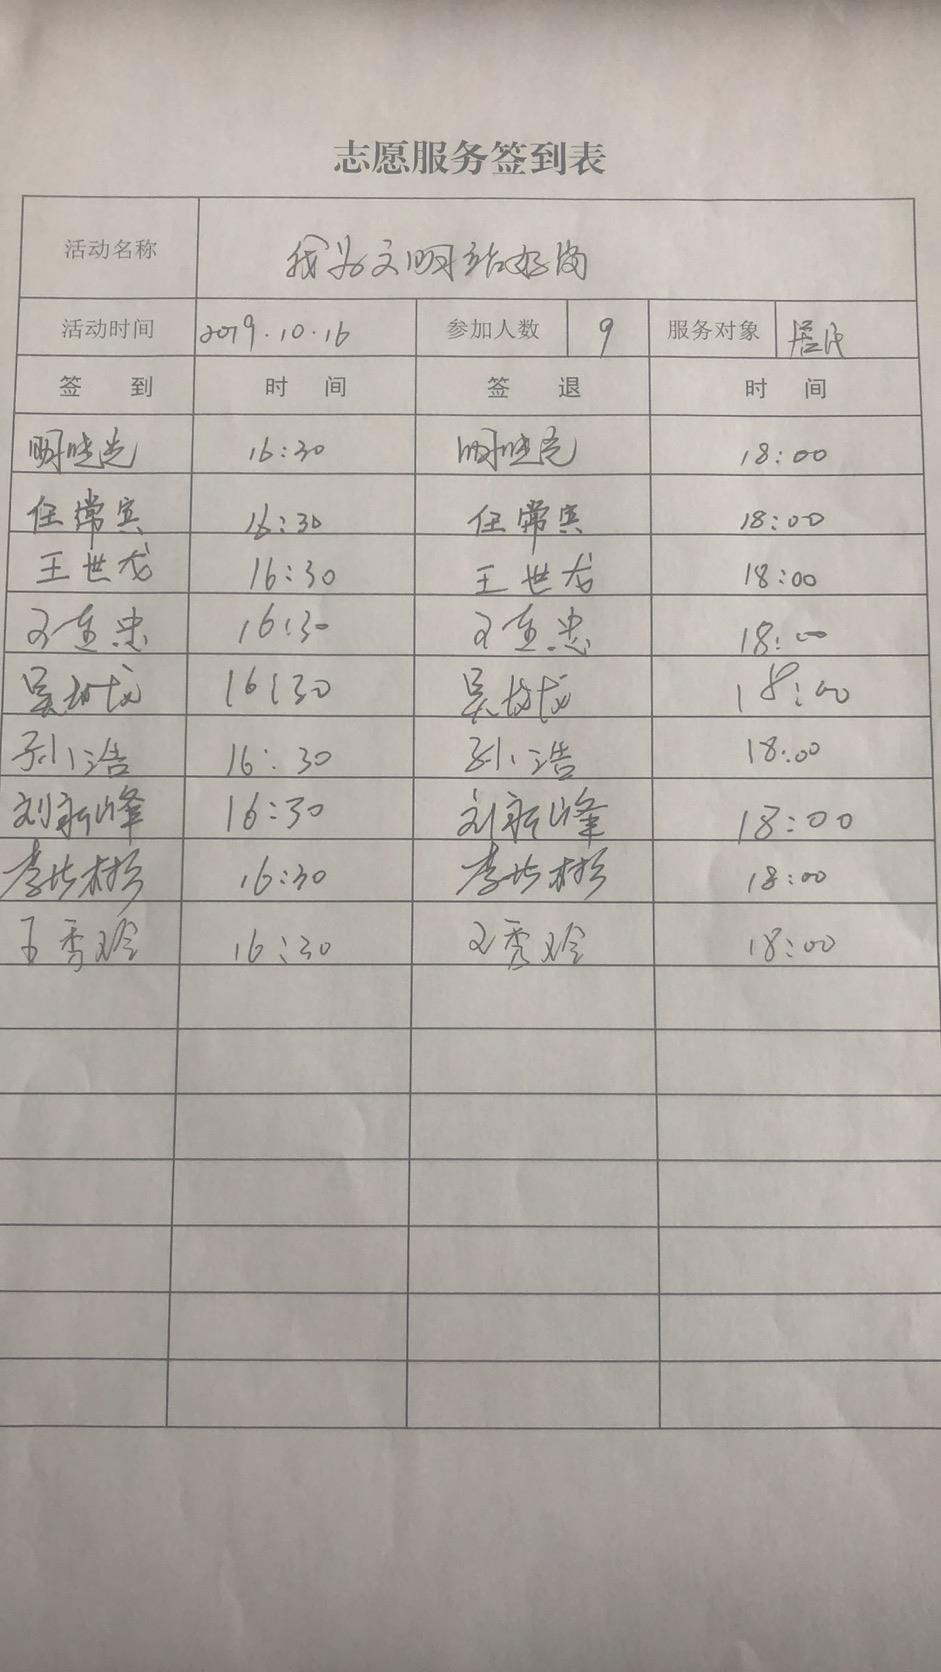 志愿服务签到表
活动名称 我为文明站好岗
活动时间 2019.10.16 参加人数 9 服务对象 居民
签 到 时 间 签 退 时 间
明晓光 16:30 明晓光 18:00
任常宾 16:30 任常宾 18:00
王世龙 16:30 王世龙 18:00
王连忠 16:30 王连忠 18:00
吴 16:30 吴 18:00
孙浩 16:30 孙浩 18:00
刘新峰 16:30 刘新峰 18:00
李长彬 16:30 李长彬 18:00
王秀玲 16:30 王秀玲 18:00